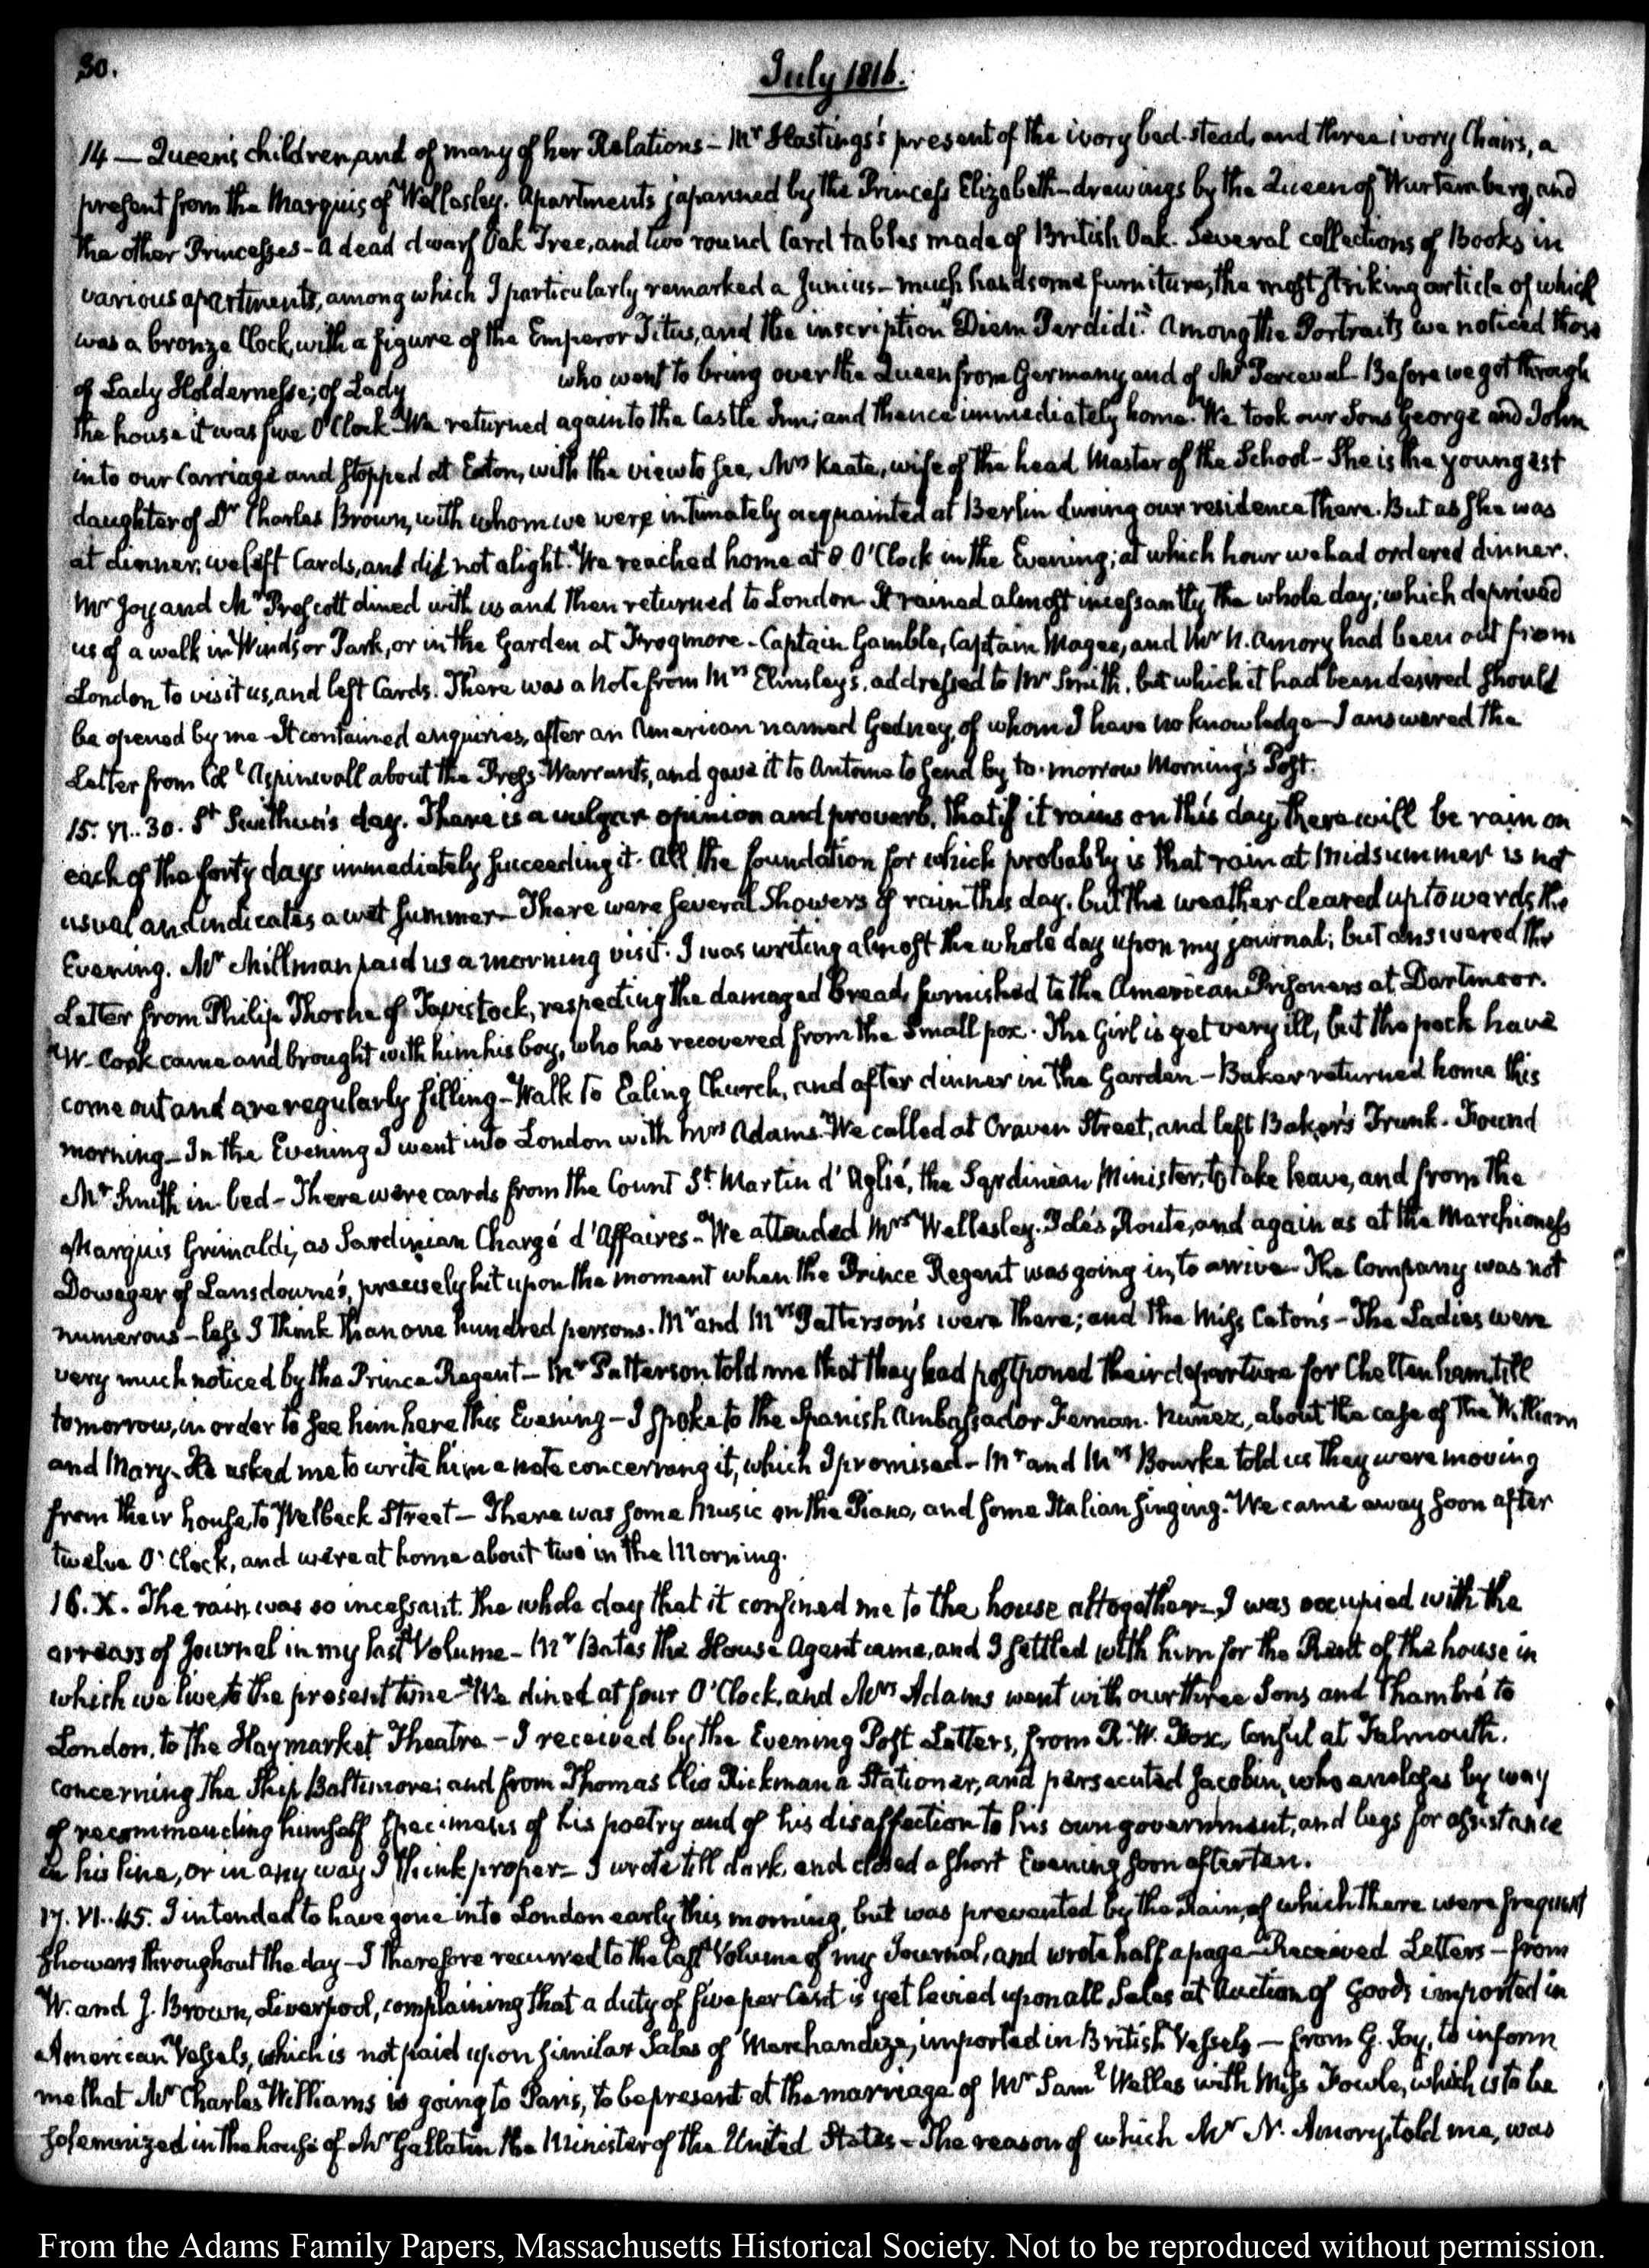 30.
July 1816.
14 — Queen's children, and of many of her Relations — Mr Hastings's present of the ivory bed-stead, and three ivory Chairs, a
present from the Marquis of Wellesley. Apartments japanned by the Princess Elizabeth — drawings by the Queen of Wurtemberg, and
the other Princesses — a dead dwarf Oak Tree, and two round Card tables made of British Oak. Several collections of Books in
various apartments, among which I particularly remarked a Junius — much handsome furniture, the most striking article of which
was a bronze Clock, with a figure of the Emperor Titus, and the inscription "Diem Perdidi." Among the Portraits we noticed those
of Lady Holdernesse; of Lady who went to bring over the Queen from Germany, and of Mr Perceval — Before we got through
the house it was five O'Clock — We returned again to the Castle Inn; and thence immediately home. We took our Sons George and John
into our Carriage and stopped at Eaton, with the view to see, Mrs Keate, wife of the head Master of the School — She is the youngest
daughter of Dr Charles Brown, with whom we were intimately acquainted at Berlin during our residence there. But as she was
at dinner, we left Cards, and did not alight. We reached home at 8 O'Clock in the Evening; at which hour we had ordered dinner.
Mr Joy and Mr Prescott dined with us and then returned to London — It rained almost incessantly the whole day; which deprived
us of a walk in Windsor Park, or in the Garden at Frogmore — Captain Gamble, Captain Magee, and Mr N. Amory had been out from
London to visit us, and left Cards. There was a Note from Mrs Elmsley's, addressed to Mr Smith, but which it had been desired should
be opened by me — It contained enquiries, after an American named Gedney, of whom I have no knowledge — I answered the
Letter from Coll Aspinwall about the Press-Warrants, and gave it to Antoine to send by to-morrow Morning's Post.
15. VI..30. St Swithin's day. There is a vulgar opinion and proverb, that if it rains on this day, there will be rain on
each of the forty days immediately succeeding it. All the foundation for which probably is that rain at Midsummer is not
usual and indicates a wet summer — There were several Showers of rain this day, but the weather cleared up towards the
Evening. Mr Millman paid us a morning visit. I was writing almost the whole day upon my journal; but answered the
Letter from Philip Thorne of Tavistock, respecting the damaged bread, furnished to the American Prisoners at Dartmoor.
W. Cook came and brought with him his boy, who has recovered from the small pox. The Girl is yet very ill, but the pock have
come out and are regularly filling — Walk to Ealing Church, and after dinner in the Garden — Baker returned home this
morning — In the Evening I went into London with Mrs Adams. We called at Craven Street, and left Baker's Trunk. Found
Mr Smith in bed — There were cards from the Count St Martin d'Aglié, the Sardinian Minister, to take leave, and from the
Marquis Grimaldi, as Sardinian Chargé d'Affaires — We attended Mrs Wellesley-Pole's Route, and again as at the Marchioness
Dowager of Lansdowne's, precisely hit upon the moment when the Prince Regent was going in, to arrive — The Company was not
numerous — less I think than one hundred persons. Mr and Mrs Patterson's were there; and the Miss Caton's — The Ladies were
very much noticed by the Prince Regent — Mr Patterson told me that they had postponed their departure for Cheltenham, till
tomorrow, in order to see him here this Evening — I spoke to the Spanish Ambassador Fernan-Nuñez, about the case of the William
and Mary. He asked me to write him a note concerning it, which I promised — Mr and Mrs Bourke told us they were moving
from their house, to Welbeck Street — There was some Music on the Piano, and some Italian singing. We came away soon after
twelve O'Clock, and were at home about two in the Morning.
16. X. The rain was so incessant the whole day that it confined me to the house altogether — I was occupied with the
arrears of Journal in my last Volume — Mr Bates the House Agent came, and I settled with him for the Rent of the house in
which we live to the present time — We dined at four O'Clock, and Mrs Adams went with our three Sons and Thambré to
London, to the Haymarket Theatre — I received by the Evening Post Letters, from R. W. Fox, Consul at Falmouth,
concerning the Ship Baltimore; and from Thomas Clio Rickman a Stationer, and persecuted Jacobin, who encloses by way
of recommending himself specimens of his poetry and of his disaffection to his own government, and begs for assistance
in his line, or in any way I think proper — I wrote till dark, and closed a short Evening soon after ten.
17. VI..45. I intended to have gone into London early this morning, but was prevented by the Rain, of which there were frequent
showers throughout the day — I therefore recurred to the last Volume of my Journal, and wrote half a page — Received Letters — from
W. and J. Brown, Liverpool, complaining that a duty of five per Cent is yet levied upon all Sales at Auction of Goods imported in
American Vessels, which is not paid upon similar Sales of Merchandize, imported in British Vessels — from G. Joy, to inform
me that Mr Charles Williams is going to Paris, to be present at the marriage of Mr Saml Welles with Miss Fowle, which is to be
solemnized in the house of Mr Gallatin the Minister of the United States — The reason of which Mr N. Amory told me, was
From the Adams Family Papers, Massachusetts Historical Society. Not to be reproduced without permission.